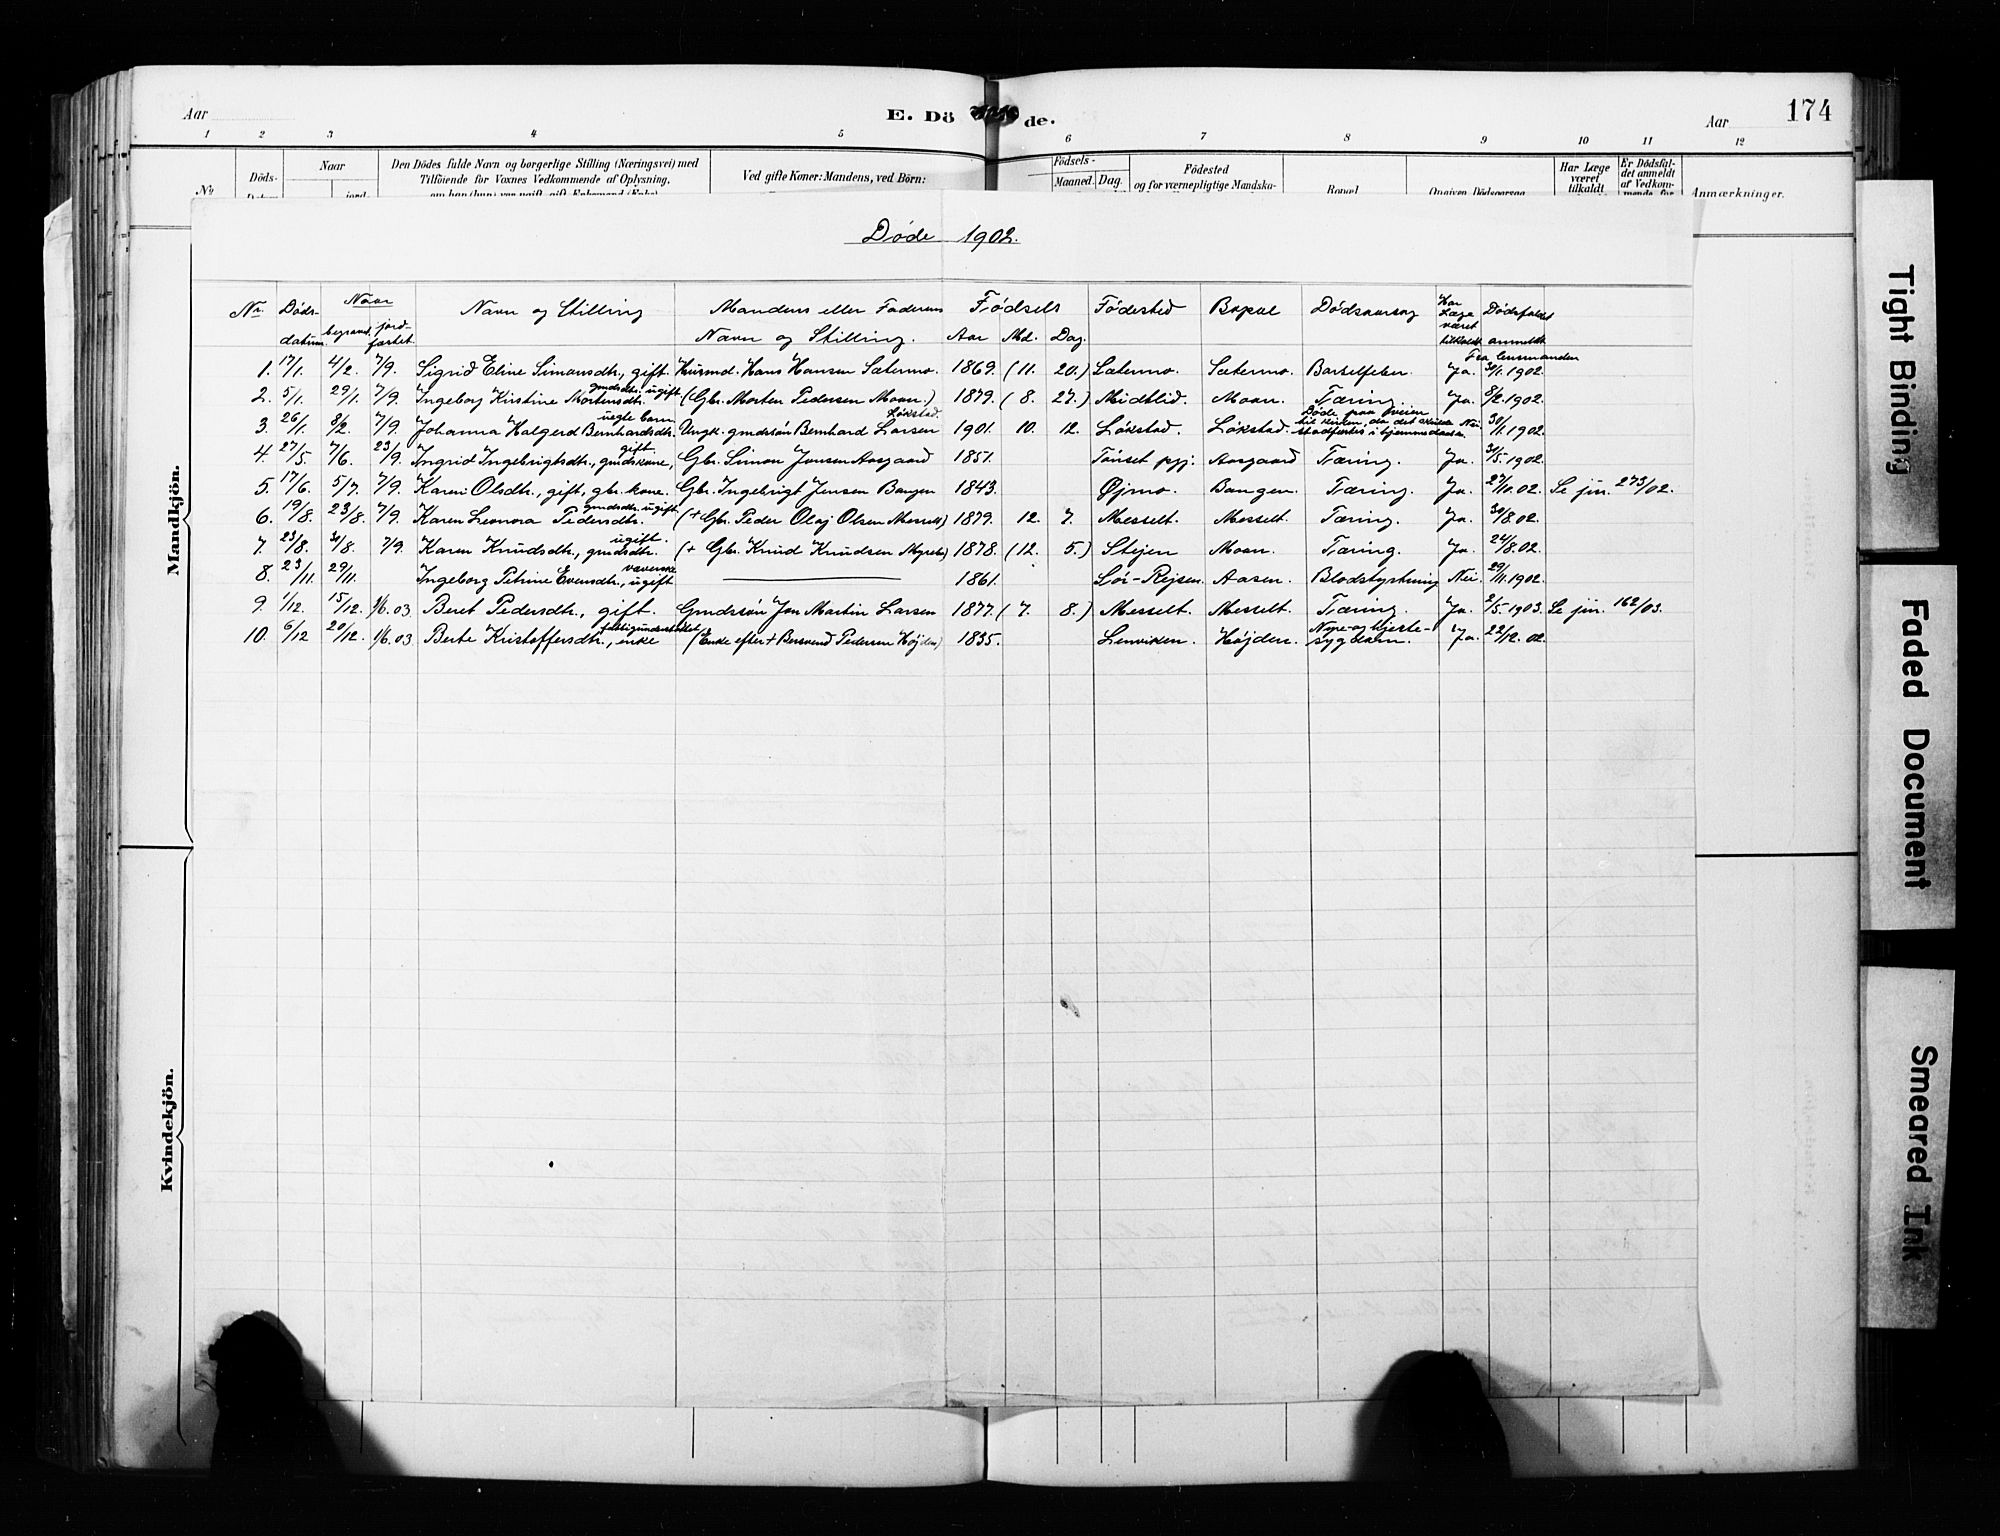 Aar
E. Dö de.
Aar
174
1 2 3 4 5 6 7 8 9 10 11 12
No
Döds-
Naar
jord-
Den Dödes fulde Navn og borgerlige Stilling (Næringsvei) med
Tilföiende for Voxnes Vedkommende af Oplysning,
om han (hun) var ugift, gift, Enkemand (Enke)
Ved gifte Koner: Mandens, ved Börn:
Födsels-
Maaned. Dag.
Födested
og for værnepligtige Mandska-
Bopæl
Opgiven Dödsaarsag
Har Læge
været
tilkaldt
Er Dödsfal-
det anmeldt
af Vedkom-
mende for
Anmærkninger.
Døde 1902.
Nr. Døds-datum. Naar begravet. jord-fæstet. Navn og Stilling Mandens eller Faderens Navn og Stilling. Fødsels Aar Md. Dag. Fødested Bopæl Dødsaarsag Har Læge været tilkaldt Dødsfaldet anmeldt
Fra lensmanden
1. 17/1. 4/2. 7/9. Sigrid Eline Simonsdtr., gift. Husmd. Hans Hansen Sætermo. 1869. (11. 20.) Sætermo. Sætermo. Barselfeber. Ja. 30/1. 1902.
2. 5/1. 29/1. 7/9. Ingeborg Kirstine Mortensdtr. gmdsdtr. ugift. (Gbr. Morten Pedersen Moan.) 1879. (8. 27.) Midtlid. Moan. Tæring. Ja. 8/2. 1902.
3. 26/1. 8/2. 7/9. Johanna Halgerd Bernhardsdtr. uegte barn Ungk. gmdssøn Bernhard Larsen Løkstad 1901. 10. 12. Løkstad. Løkstad. Døde paa veien til kirken, da det skulde stadfestes i hjemmedaaben. Nei. 30/1. 1902.
4. 27/5. 7/6. 23/9. Ingrid Ingebrigtsdtr., gmdskone, gift. Gbr. Simon Jonsen Aasgaard 1851. Tønset pgj. Aasgaard Tæring. Ja. 31/5. 1902.
5. 17/6. 5/7. 7/9. Karen Olsdtr., gift, gbr. kone. Gbr. Ingebrigt Jensen Bangen 1843. Øjmo. Bangen. Tæring. Ja. 27/10. 02. Se jnr. 273/02.
6. 19/8. 23/8. 7/9. Karen Leonora Pedersdtr. gmdsdtr. ugift. (+ Gbr. Peder Olaj Olsen Messelt) 1879. 12. 7. Messelt. Messelt. Tæring. Ja. 30/8. 02.
7. 23/8. 30/8. 7/9. Karen Knudsdtr., gmdsdtr. ugift. (+ Gbr. Knud Knudsen Myreb.) 1878. (12. 5.) Stejen Moan. Tæring. Ja. 24/8. 02.
8. 23/11. 29/11. Ingeborg Petrine Evensdtr., ugift væverske 1861. Sör-Rejsen. Aasen. Blodstyrtning Nei. 29/11. 1902.
9. 1/12. 15/12. 1/6. 03. Beret Pedersdtr., gift. Gmdssøn Jon Martin Larsen 1877. (7. 8.) Messelt. Messelt. Tæring. Ja. 2/5. 1903. Se jnr. 162/03.
10. 6/12 20/12. 1/6. 03. Berte Kristoffersdtr., enke fattigunderstøttet (Enke efter + Bersvend Pedersen Højden) 1835. Lenviken. Højden. Nyre- og hjerte-sygdom. Ja. 22/12. 02.
Mandkjön.
Kvindekjön.
Tight Binding
Faded Document
Smeared Ink